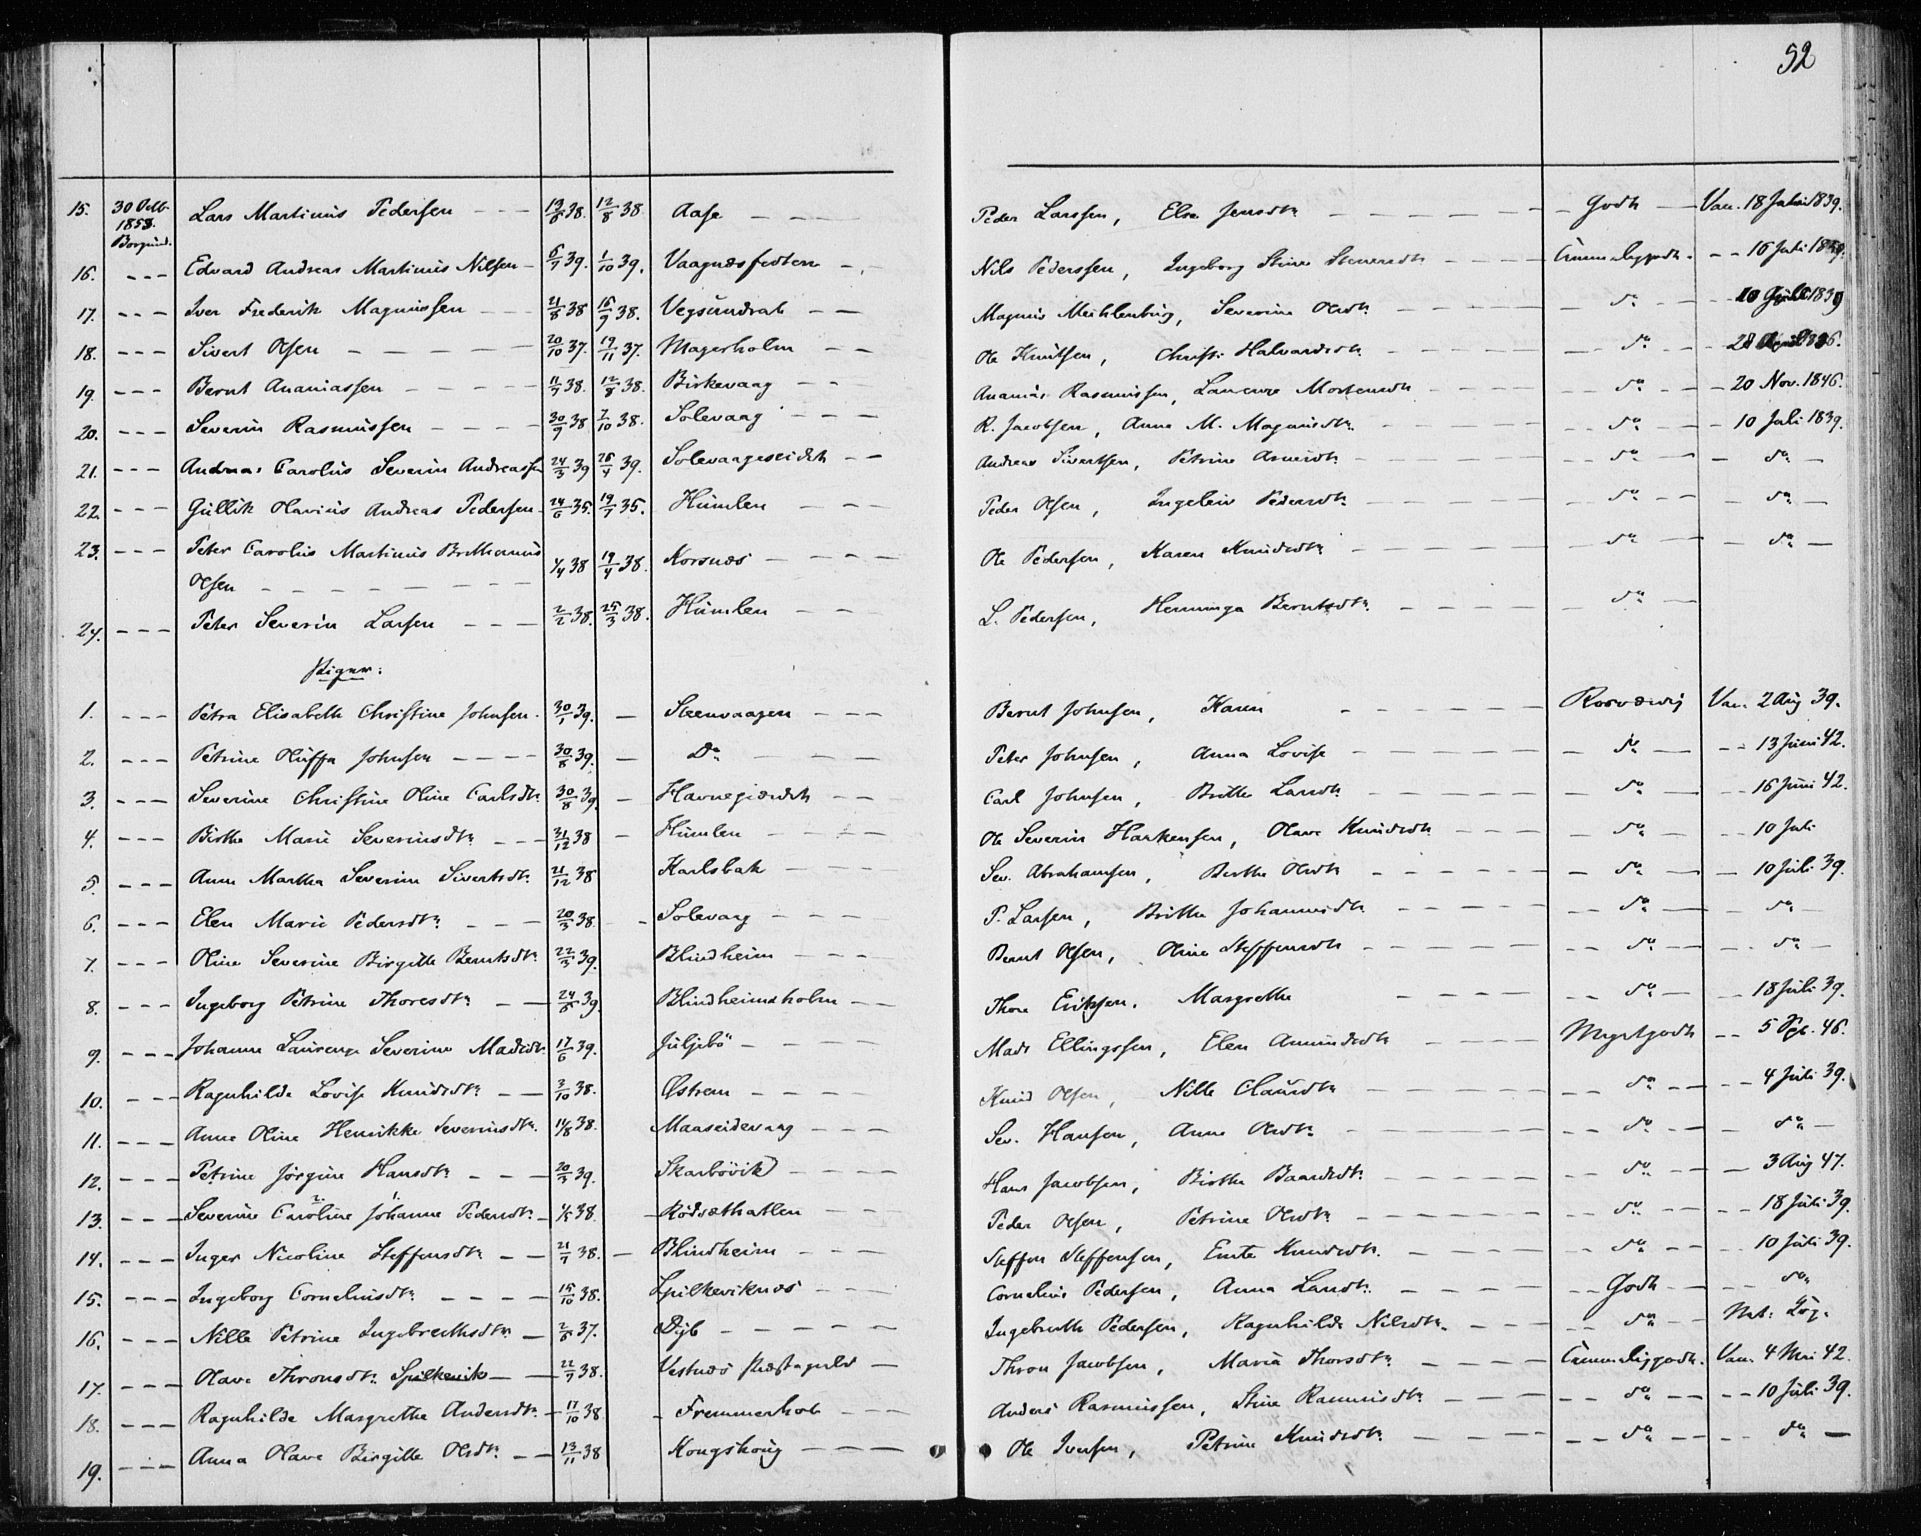 52
15. 30 Octb. 1853. Borgund. Lars Martinus Pedersen 38. 12/8 38. Aase Peder Larssen, Else Jensdtr Godt Vac. 18 Juli 1839.
16. Edvard Andreas Martinus Nilsen 39. 1/10 39. Vaagnæsfedten Nils Pederssen, Ingeborg Stine 16 Juli
17. Iver Frederik Magnussen 38 16/9 38. Vegsundrab Magnus Muhlenburg, Severine Olsdtr do
18. Sivert Olsen 20/10 37. 19/11 37. Magerholm Ole Knutsen, Halvardsdtr do 28
19. Bernt Ananiassen 11/7 38. 12/8 38. Birkevaag Ananias Rasmussen, Laurenze Mortensdtr do 20 Nov. 1846.
20. Severin Rasmussen 30/9 38 7/10 38. Solevaag R. Jacobsen, Anne M. Magnusdtr do 10 Juli 1839.
21. Andreas Carolus Severin Andreassen 24/3 39 28/4 39. Solevaagseidet Andreas Sivertsen, Petrine do do
22. Gullik Olavius Andreas Pedersen 24/6 35. 19/7 35. Humlen Peder Olsen, Ingeleiv Pedersdtr do do
23. Peter Carolus Martinus
Olsen 1/4 38 19/4 38. Korsnæs Ole Pedersen, Karen Knudsdtr do do
24. Peter Severin Larsen 2/2 38. 25/3 38. Humlen L. Pedersen, Henninga Berntsdtr do
Piger:
1. Petra Elisabeth Christine Johnsen 30/1 39. Steenvaagen Bernt Johnsen, Karen Vac. 2 Aug 39.
2. Petrine Johnsen 30/8 39. Do Peter Johnsen, Anna Lovise do 13 Juni 42.
3. Severine Christine Oline Carlsdtr 30/8 39. Havnegjærdet Carl Johnsen, Britte Larsdtr do 16 Juni 42.
4. Birthe Marie Severinsdtr 31/12 38 Humlen Ole Severin Haakensen, Olave Knudsdtr do 10 Juli
5. Anne Martha Severine Sivertsdtr 21/12 38 Karlsbak Sev. Abrahamsen, Berthe Olsdtr do 10 Juli 39.
6. Elen Marie Pedersdtr 20/3 38. Solevaag P. Larsen, Brithe Johannesdtr do do
7. Oline Severine Birgitte Berntsdtr 22/3 39. Blindheim Bernt Olsen, Oline Steffensdtr do do
8. Ingeborg Petrine Thoresdtr 39. Blindheimsholm Thore Eriksen, Margrethe do 18 Juli 39.
9. Johanne Laurenze Severine Madsdtr 17/6 39. Juljebö Mads Ellingssen, Elen Amundsdtr Megetgodt 5 46.
10. Ragnhilde Lovise Knudsdtr 3/10 38. Østrem Knud Olsen, Nille Clausdtr do 4 Juli 39.
11. Anne Oline Henrikke Severinsdtr 11/8 38. Maaseidevaag Sev. Hansen, Anne Olsdtr do do
12. Petrine Jörgine Hansdtr 20/3 39. Skarbövik Hans Jacobsen, Birthe Baardsdtr do 3 Aug 47.
13. Severine Caroline Johanne Pedersdtr 38. Rödsæthatlen Peder Olsen, Petrine Olsdtr do 18 Juli 39.
14. Inger Nicoline Steffensdtr 21/7 38. Blindheim Steffen Steffensen, Knudsdtr do 10 Juli 39.
15. Ingeborg Corneliusdtr 15/10 38. Spilkeviknæs Cornelius Pedersen, Anna Larsdtr Godt do
16. Nille Petrine Ingebrethsdtr 37. Dyb Ingebreth Pedersen, Ragnhilde Nilsdtr do
17. Olave Thronsdtr Spilkevik 22/7 38. Vestnæs Præstegield Thron Jacobsen, Maria Thorsdtr Vac. 4 Mai 42.
18. Ragnhilde Margrethe Andersdtr 11/10 38 Fremmerhol Anders Rasmussen, Stine Rasmusdtr do 10 Juli 39.
19. Anna Olave Birgitte Olsdtr 13/11 38 Kongshoug Ole Iversen, Petrine Knudsdtr do do